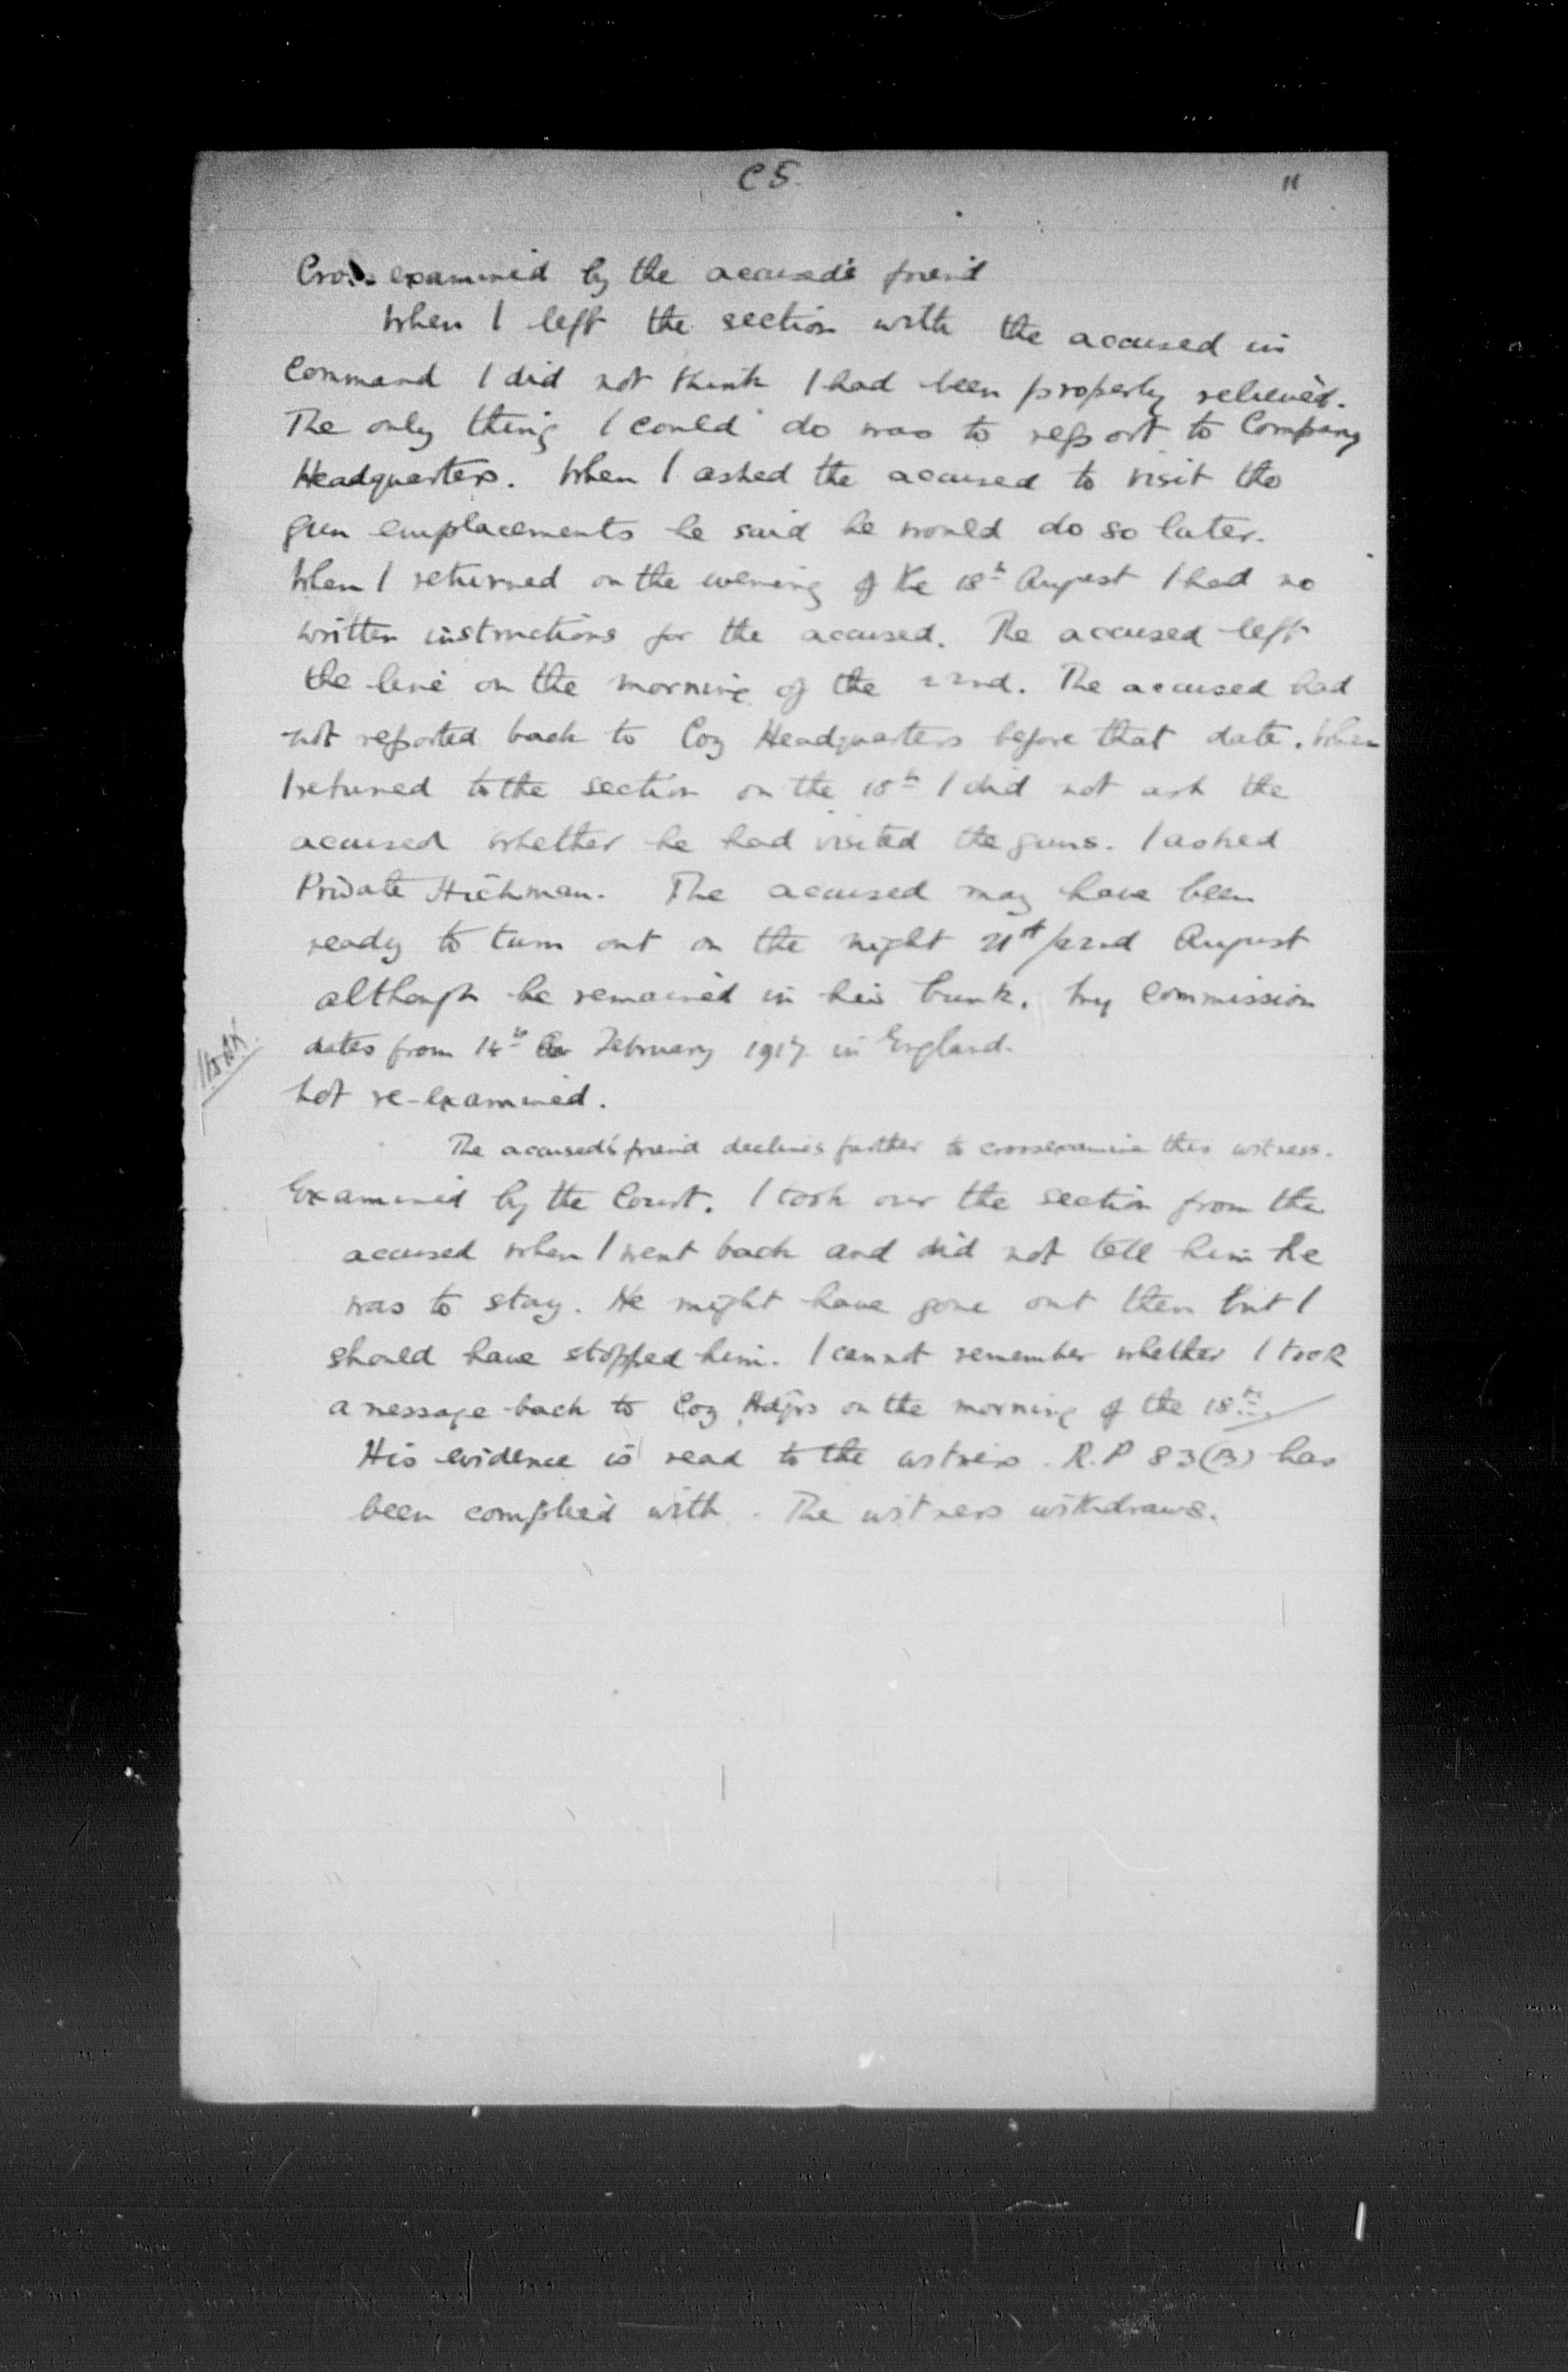 C5.
11
Cross-examined by the accused's friend
When I left the section with the accused in
command I did not think I had been properly relieved.
The only thing I could do was to report to Company
Headquarters. When I asked the accused to visit the
gun emplacements he said he would do so later.
When I returned on the evening of the 18th August I had no
written instructions for the accused. The accused left
the line on the morning of the 22nd. The accused had
not reported back to Coy Headquarters before that date. When
I returned to the section on the 18th I did not ask the
accused whether he had visited the guns. I asked
Private Hickman. The accused may have been
ready to turn out on the night 21st/22nd August
although he remained in his bunk. My commission
dates from 14th February 1917 in England.
Not re-examined.
The accused's friend declines further to crossexamine this witness.
Examined by the Court. I took over the section from the
accused when I went back and did not tell him he
was to stay. He might have gone out then but I
should have stopped him. I cannot remember whether I took
a message back to Coy Hdqrs on the morning of the 18th.
His evidence is read to the witness. R.P 83(B) has
been complied with. The witness withdraws.